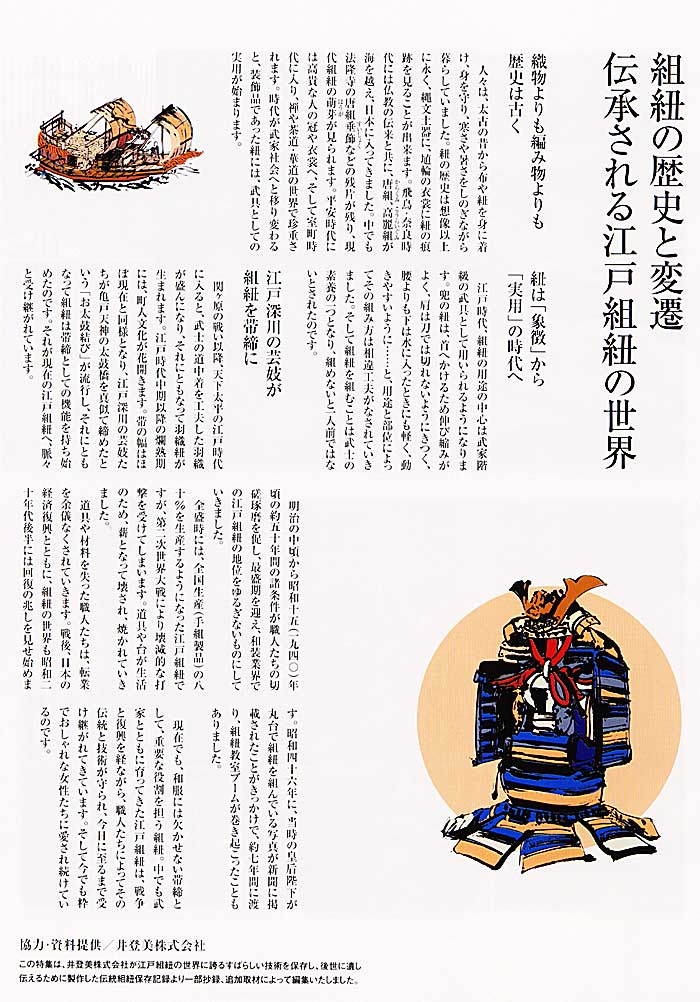 組紐の歴史と変遷
伝承される江戸組紐の世界
織物よりも編み物よりも
歴史は古く
人々は、太古の昔から布や紐を身に着
け、身を守り、寒さや暑さをしのぎながら
暮らしていました。紐の歴史は想像以上
に永く、縄文土器に、埴輪の衣裳に紐の痕
跡を見ることが出来ます。飛鳥・奈良時
代には仏教の伝来と共に、唐組、高麗組が
海を越え、日本に入ってきました。中でも
法隆寺の唐組垂飾などの残片が残り、現
代組紐の萌芽が見られます。平安時代に
は高貴な人の冠や衣裳へ、そして室町時
代に入り、禅や茶道・華道の世界で珍重さ
れます。時代が武家社会へと移り変わる
と、装飾品であった紐には、武具としての
実用が始まります。
紐は「象徴」から
「実用」の時代へ
江戸時代、組紐の用途の中心は武家階
級の武具として用いられるようになりま
す。兜の紐は、首へかけるため伸び縮みが
よく、肩は刀では切れないようにきつく、
腰よりも下は水に入ったときにも軽く、動
きやすいように……と、用途と部位によっ
てその組み方は相違工夫がなされていき
ました。そして組紐を組むことは武士の
素養の一つとなり、組めないと一人前ではな
いとされたのです。
江戸深川の芸妓が
組紐を帯締に
関ヶ原の戦い以降、天下太平の江戸時代
に入ると、武士の道中着を工夫した羽織
が盛んになり、それにともなって羽織紐が
生まれます。江戸時代中期以降の爛熟期
には、町人文化が花開きます。帯の幅はほ
ぼ現在と同様となり、江戸深川の芸妓た
ちが亀戸天神の太鼓橋を真似て締めたと
いう「お太鼓結び」が流行し、それにとも
なって組紐は帯締としての機能を持ち始
めたのです。それが現在の江戸組紐へ、脈々
と受け継がれています。
明治の中頃から昭和十五(一九四〇)年
頃の約五十年間の諸条件が職人たちの切
磋琢磨を促し、最盛期を迎え、和装業界で
の江戸組紐の地位をゆるぎないものにして
いきました。
全盛時には、全国生産(手組製品)の八
十%を生産するようになった江戸組紐で
すが、第二次世界大戦により壊滅的な打
撃を受けてしまいます。道具や台が生活
のため、薪となって壊され、焼かれていき
ました。
道具や材料を失った職人たちは、転業
を余儀なくされていきます。戦後、日本の
経済復興とともに、組紐の世界も昭和二
十年代後半には回復の兆しを見せ始めま
す。昭和四十六年に、当時の皇后陛下が
丸台で組紐を組んでいる写真が新聞に掲
載されたことがきっかけで、約七年間に渡
り、組紐教室ブームが巻き起こったことも
ありました。
現在でも、和服には欠かせない帯締と
して、重要な役割を担う組紐。中でも武
家とともに育ってきた江戸組紐は、戦争
と復興を経ながら、職人たちによってその
伝統と技術が守られ、今日に至るまで受
け継がれてきています。そして今でも粋
でおしゃれな女性たちに愛され続けてい
るのです。
協力・資料提供／井登美株式会社
この特集は、井登美株式会社が江戸組紐の世界に誇るすばらしい技術を保存し、後世に遺し
伝えるために製作した伝統組紐保存記録より一部抄録、追加取材によって編集いたしました。